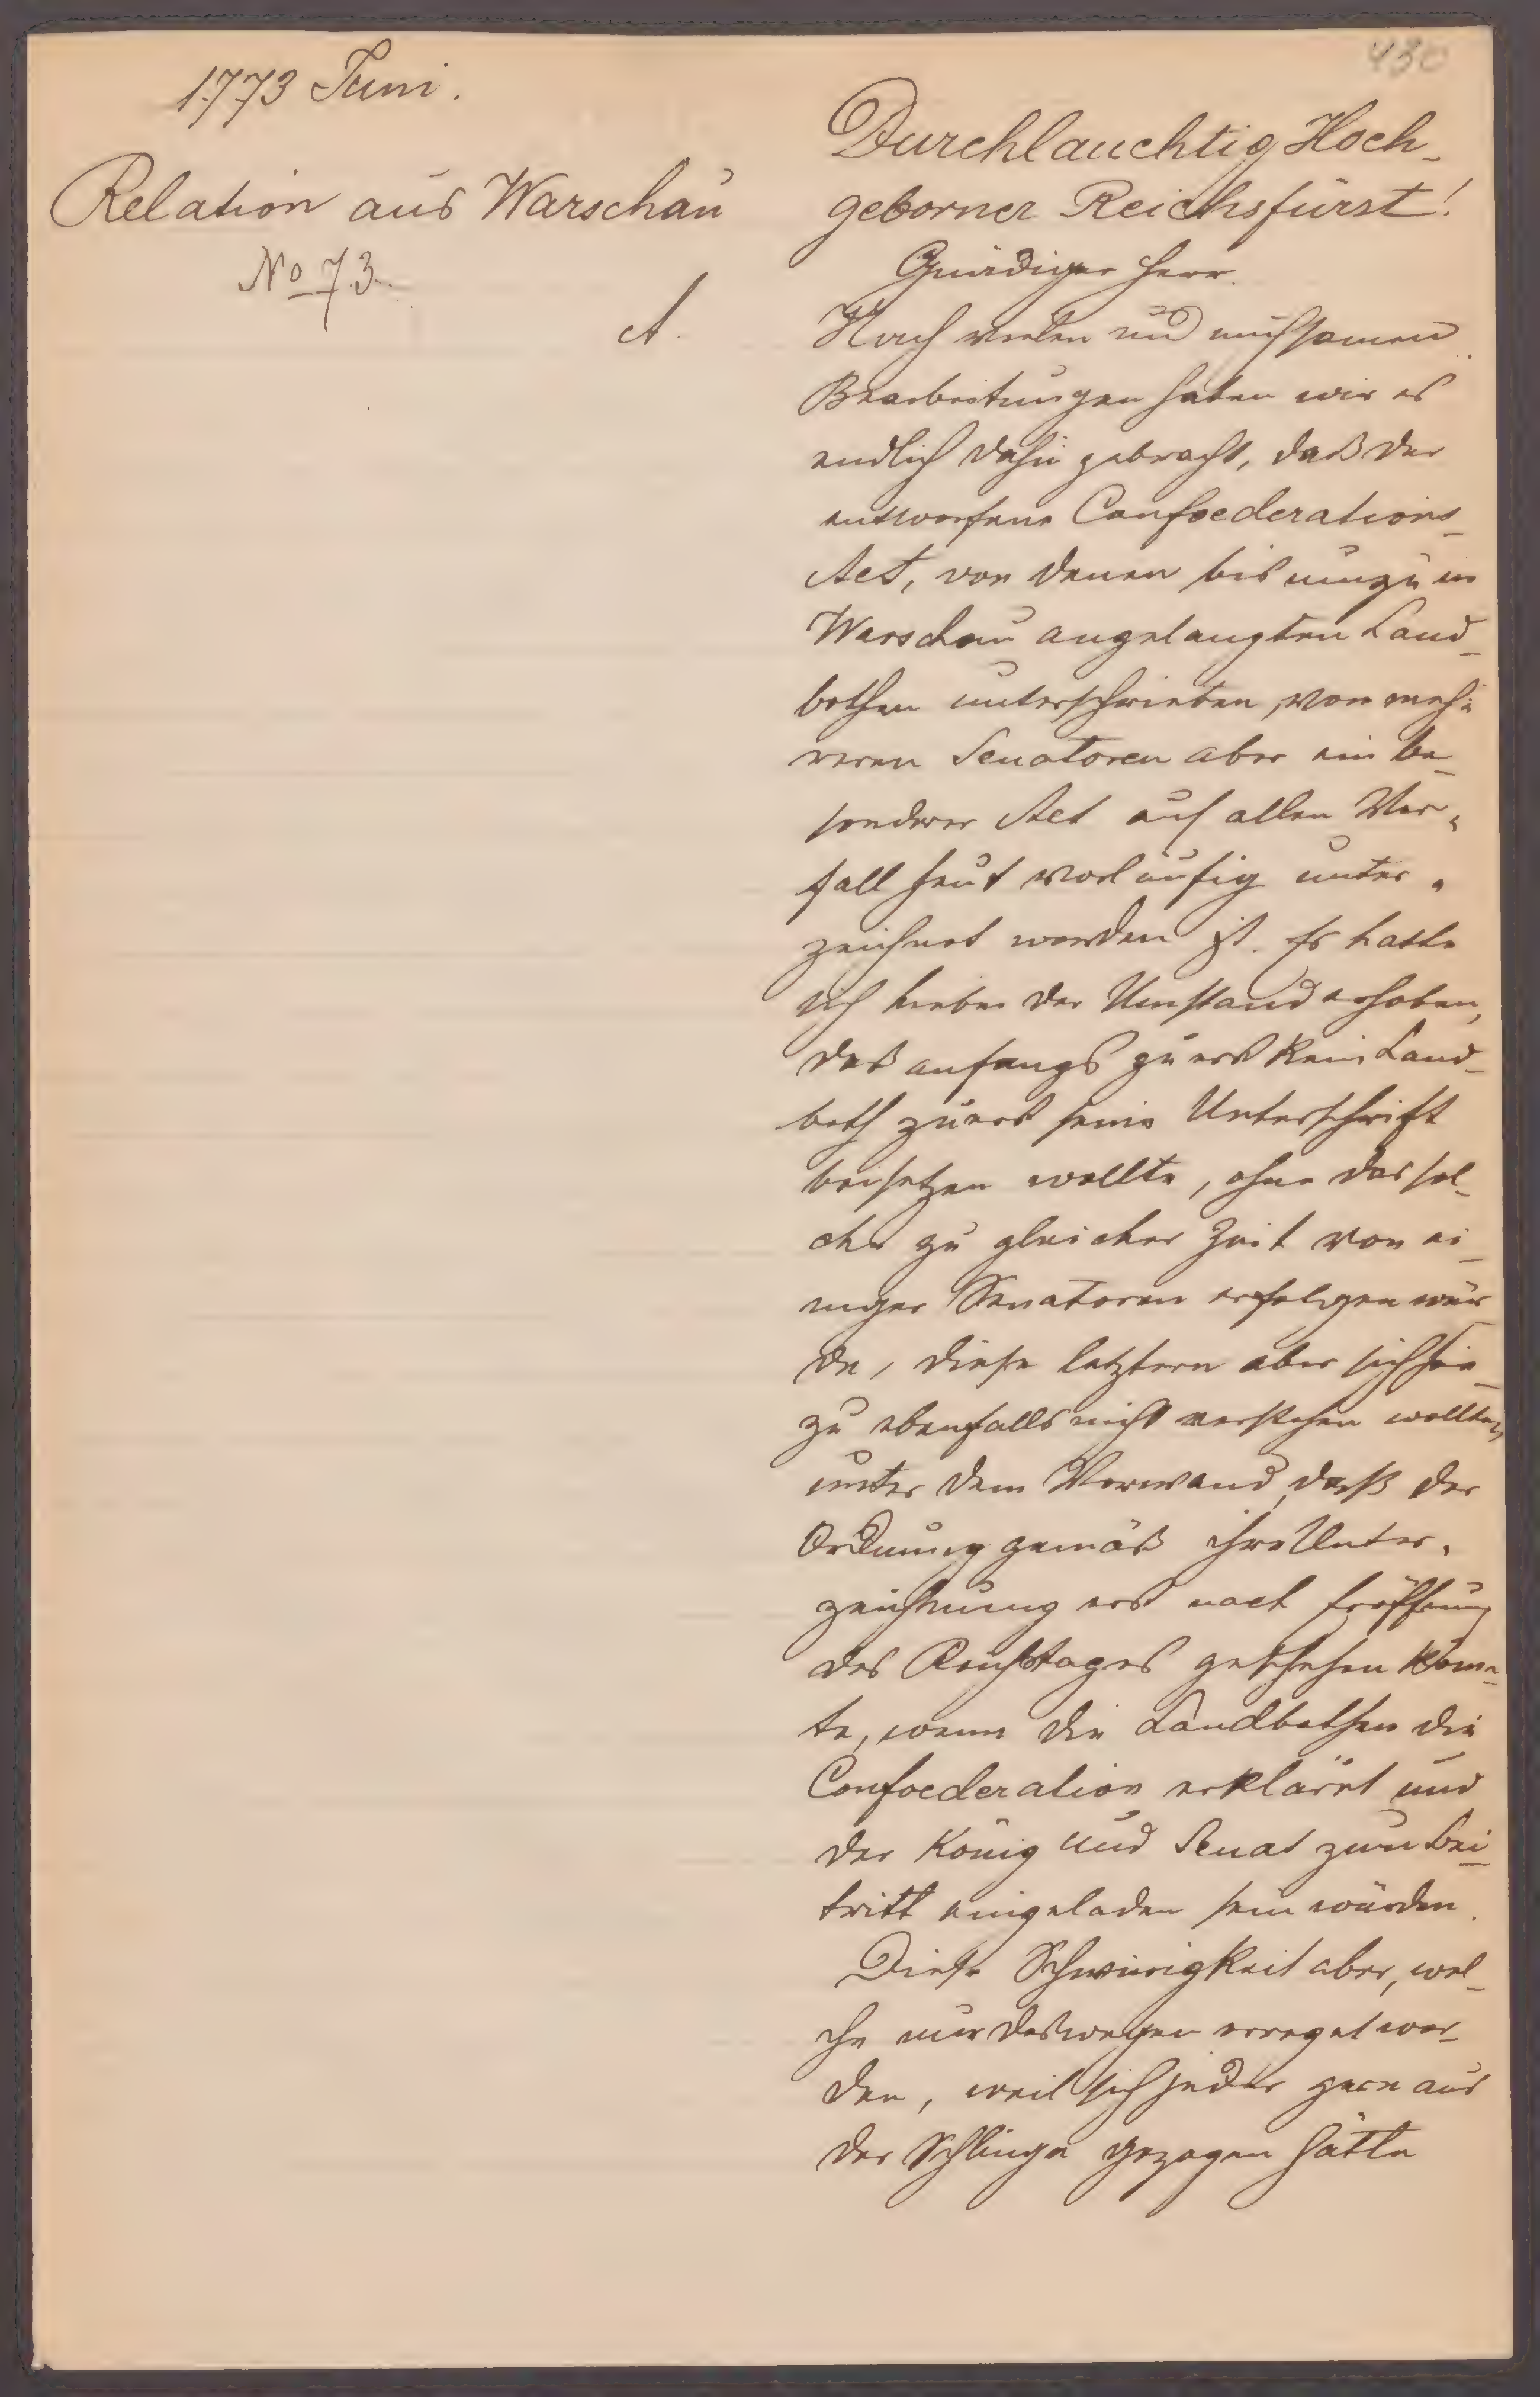 430
1773 Juni.
Relation aus Warschau
No 73.
A.
Durchlauchtig Hoch-
geborner Reichsfürst!
Gnädiger Herr.
Nach vielen und mühsamen
Bearbeitungen haben wir es
endlich dahin gebracht, daß der
entworfene Confoederations-
Act, von denen bis nunzu in
Warschau angelangten Land-
bothen unterschrieben, von meh-
reren Senatoren aber ein be-
sonderer Act auf allen Vor-
fall heut vorläufig unter-
zeichnet worden ist. Es hatte
sich hiebei der Umstand erhoben,
das anfangs zu erst kein Land-
both zuerst seine Unterschrift
beisetzen wollte, ohne das sol-
che zu gleicher Zeit von ei-
niger Senatoren erfolgen wür-
de, diese letztern aber sich hie-
zu ebenfalls nicht verstehen wollten,
unter dem Vorwand, daß der
Ordnung gemäß ihre Unter-
zeichnung erst nach Eröffnung
des Reichstages geschehen könn-
te, wenn die Landbothen die
Confoederation erklärt und
der König und Senat zum Bei-
tritt eingeladen sein würden.
Diese Schwierigkeit aber, wel-
che nur deswegen erreget wor-
den, weil sich jeder gern aus
der Schlinge gezogen hätte